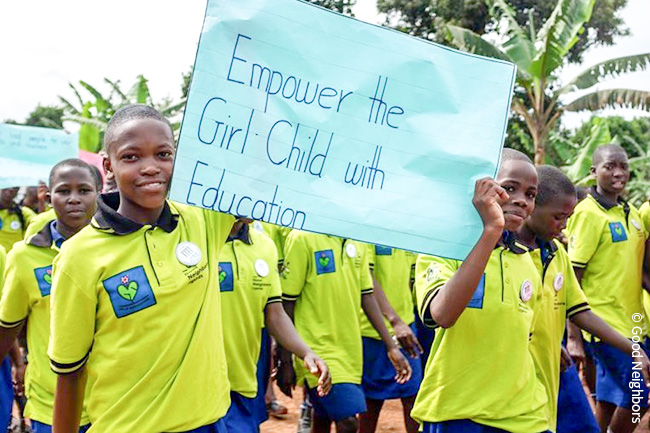 Empower the
Girl-Child with
Education
© Good Neighbors